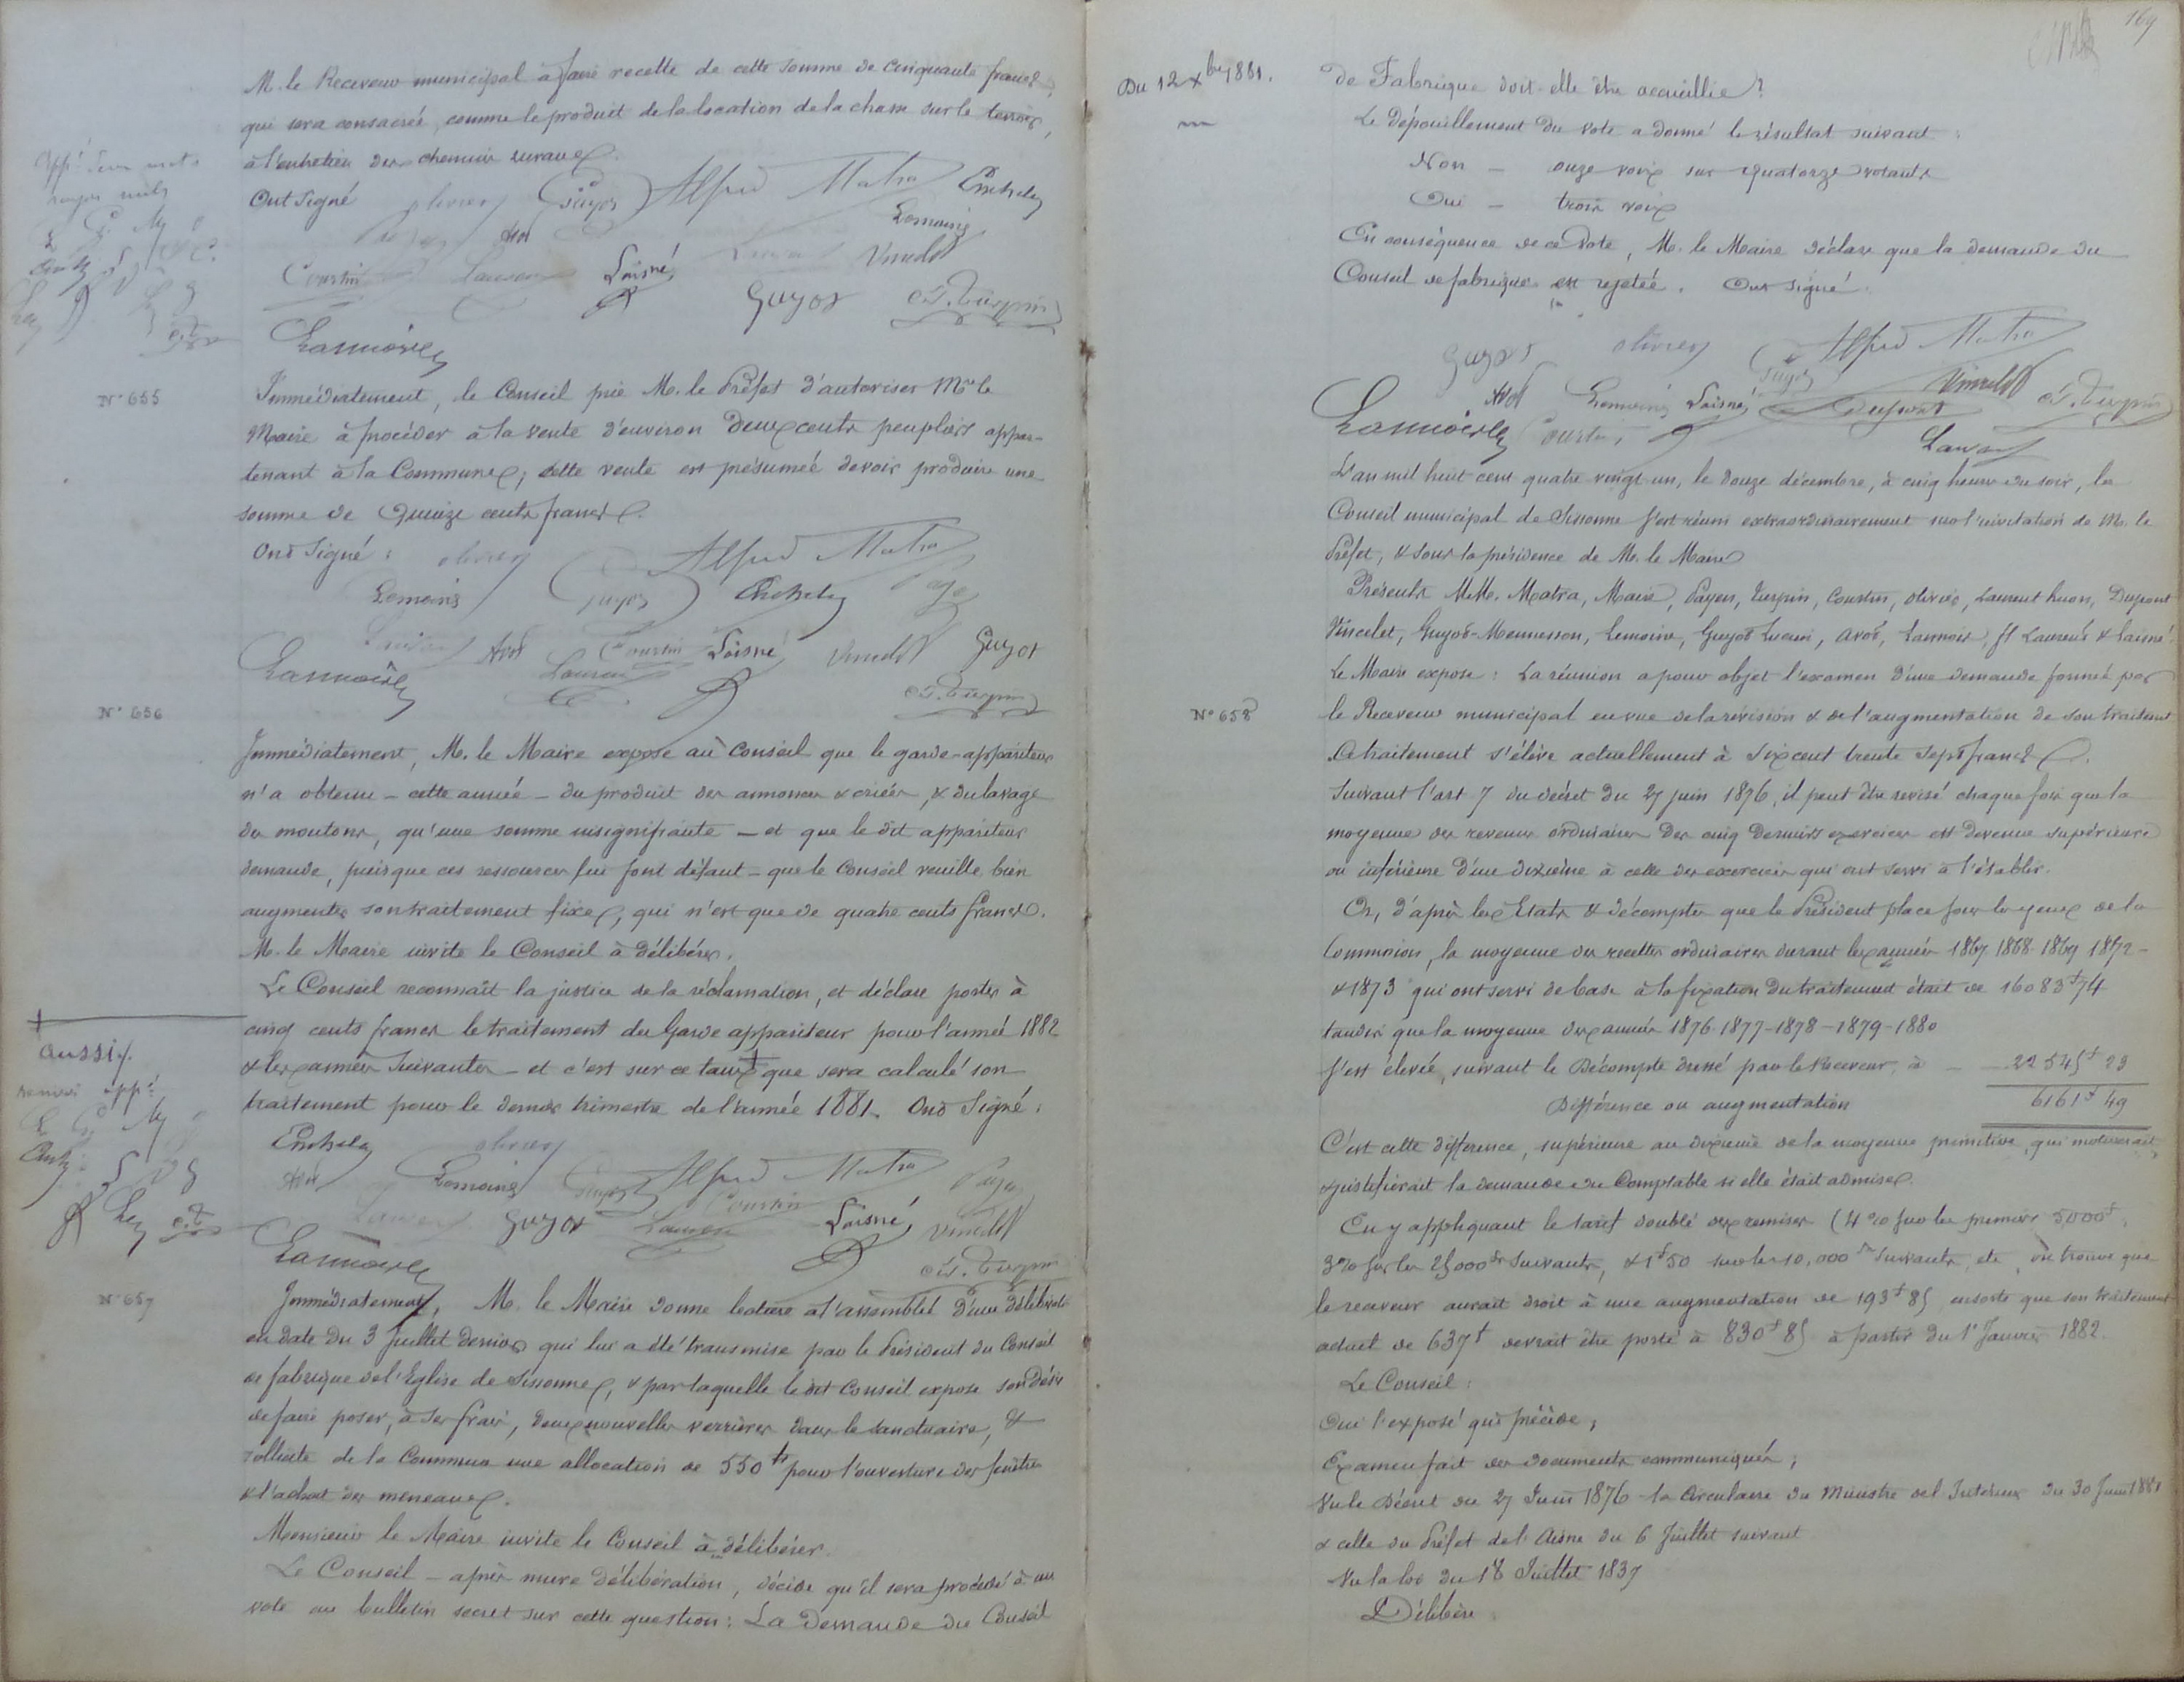 M. le Receveur municipal à faire recette de cette somme de cinquante francs,
qui sera consacrée, comme le produit de la location de la chasse sur le terroir,
à l'entretien des chemins ruraux.
Ont Signé olivier Guyot Alfred Matra
Lemoine
Avot
Courtin Laurent Loisné Vincelet
Guyot Ct. Turpin
Lannois
N° 655
Immédiatement, le Conseil prie M. le Préfet d'autoriser Mr le
Maire à procéder à la vente d'environ deux cents peupliers appar-
tenant à la Commune; cette vente est présumée devoir produire une
somme de Quinze cents francs.
Ont Signé : olivier Alfred Matra
Lemoine Guyot
Avot Courtin Loisné Vincelet Guyot
Lannois Laurent Ct. Turpin
N° 656
Immédiatement, M. le Maire expose au Conseil que le garde-appariteur
n'a obtenu - cette année - du produit des annonces & criées, & du lavage
des moutons, qu'une somme insignifiante - et que le dit appariteur
demande, puisque ces ressources lui font défaut - que le Conseil veuille bien
augmenter son traitement fixe, qui n'est que de quatre cents francs.
M. le Maire invite le Conseil à délibérer.
Le Conseil reconnaît la justice de la réclamation, et déclare porter à
cinq cents francs le traitement du Garde appariteur pour l'année 1882
& les années suivantes - et c'est sur ce taux + que sera calculé son
traitement pour le dernier trimestre de l'année 1881. Ont Signé :
+
aussi/.
renvoi app.é
olivier
Avot Lemoine Guyot Alfred Matra
Courtin
Guyot Laurent Loisné Vincelet
Lannois Ct. Turpin
N° 657
Immédiatement, M. le Maire donne lecture à l'assemblée d'une délibérat.
en date du 3 Juillet dernier qui lui a été transmise par le Président du Conseil
de fabrique de l'Eglise de Sissonne, & par laquelle le dit Conseil expose son désir
de faire poser, à ses frais, deux nouvelles verrières dans le sanctuaire, &
sollicite de la Commune une allocation de 550 fr pour l'ouverture des fenêtres
& l'achat des meneaux.
Monsieur le Maire invite le Conseil à délibérer.
Le Conseil - après mure délibération, décide qu'il sera procédé à un
vote au bulletin secret sur cette question : La demande du Conseil
169
Du 12 Xbre 1881.
de Fabrique doit-elle être accueillie ?
Le dépouillement du vote a donné le résultat suivant :
Non - onze voix sur quatorze votants
Oui - trois voix
En conséquence de ce vote, M. le Maire déclare que la demande du
Conseil de fabrique est rejetée. Ont signé :
Guyot olivier Guyot Alfred Matra
Avot Lemoine Loisné Dupont Vincelet Ct. Turpin
Lannois Courtin Laurent
L'an mil huit cent quatre vingt-un, le douze décembre, à cinq heures du soir, le
Conseil municipal de Sissonne s'est réuni extraordinairement sur l'invitation de M. le
Préfet, & sous la présidence de M. le Maire
Présents M.M. Matra, Maire, Payen, Turpin, Courtin, Olivier, Laurent huon, Dupont
Vincelet, Guyot-Mennesson, Lemoine, Guyot Lucien, Avot, Lannois, ft Laurent & Laisné
Le Maire expose : La réunion a pour objet l'examen d'une demande formée par
N° 658
le Receveur municipal en vue de la révision & de l'augmentation de son traitement
Ce traitement s'élève actuellement à Six cent trente Sept francs.
Suivant l'art 7 du décret du 27 juin 1876, il peut être revisé chaque fois que la
moyenne des revenus ordinaires des cinq derniers exercices est devenue supérieure
ou inférieure d'une dixième à celle des exercices qui ont servi à l'établir.
Or, d'après les Etats & décomptes que le Président place sous les yeux de la
Commission, la moyenne des recettes ordinaires durant les années 1867 1868 1869 1872 -
& 1873 qui ont servi de base à la fixation du traitement était de 16083f 74
tandis que la moyenne des années 1876-1877-1878-1879-1880
s'est élevée, suivant le Décompte dressé par le Receveur, à - - 22545f 23
Différence ou augmentation 6161f 49
C'est cette différence, supérieure au dixième de la moyenne primitive, qui motiverait,
& justifierait la demande du Comptable si elle était admise.
En y appliquant le tarif doublé des remises (4 % sur les premiers 5000f,
3% sur les 25,000 fr suivants, & 1f 50 sur les 10,000 fr suivants, etc, on trouve que
le receveur aurait droit à une augmentation de 193f 85 ensorte que son traitement
actuel de 637f devrait être porté à 830f 85 à partir du 1er Janvier 1882.
Le Conseil :
Oui l'exposé qui précède,
Examen fait des documents communiqués ;
Vu le Décret du 27 Juin 1876 - la Circulaire du Ministre de l'Intérieur du 30 Juin 1881
& celle du Préfet de l'Aisne du 6 Juillet suivant
Vu la loi du 18 Juillet 1837
Délibère :